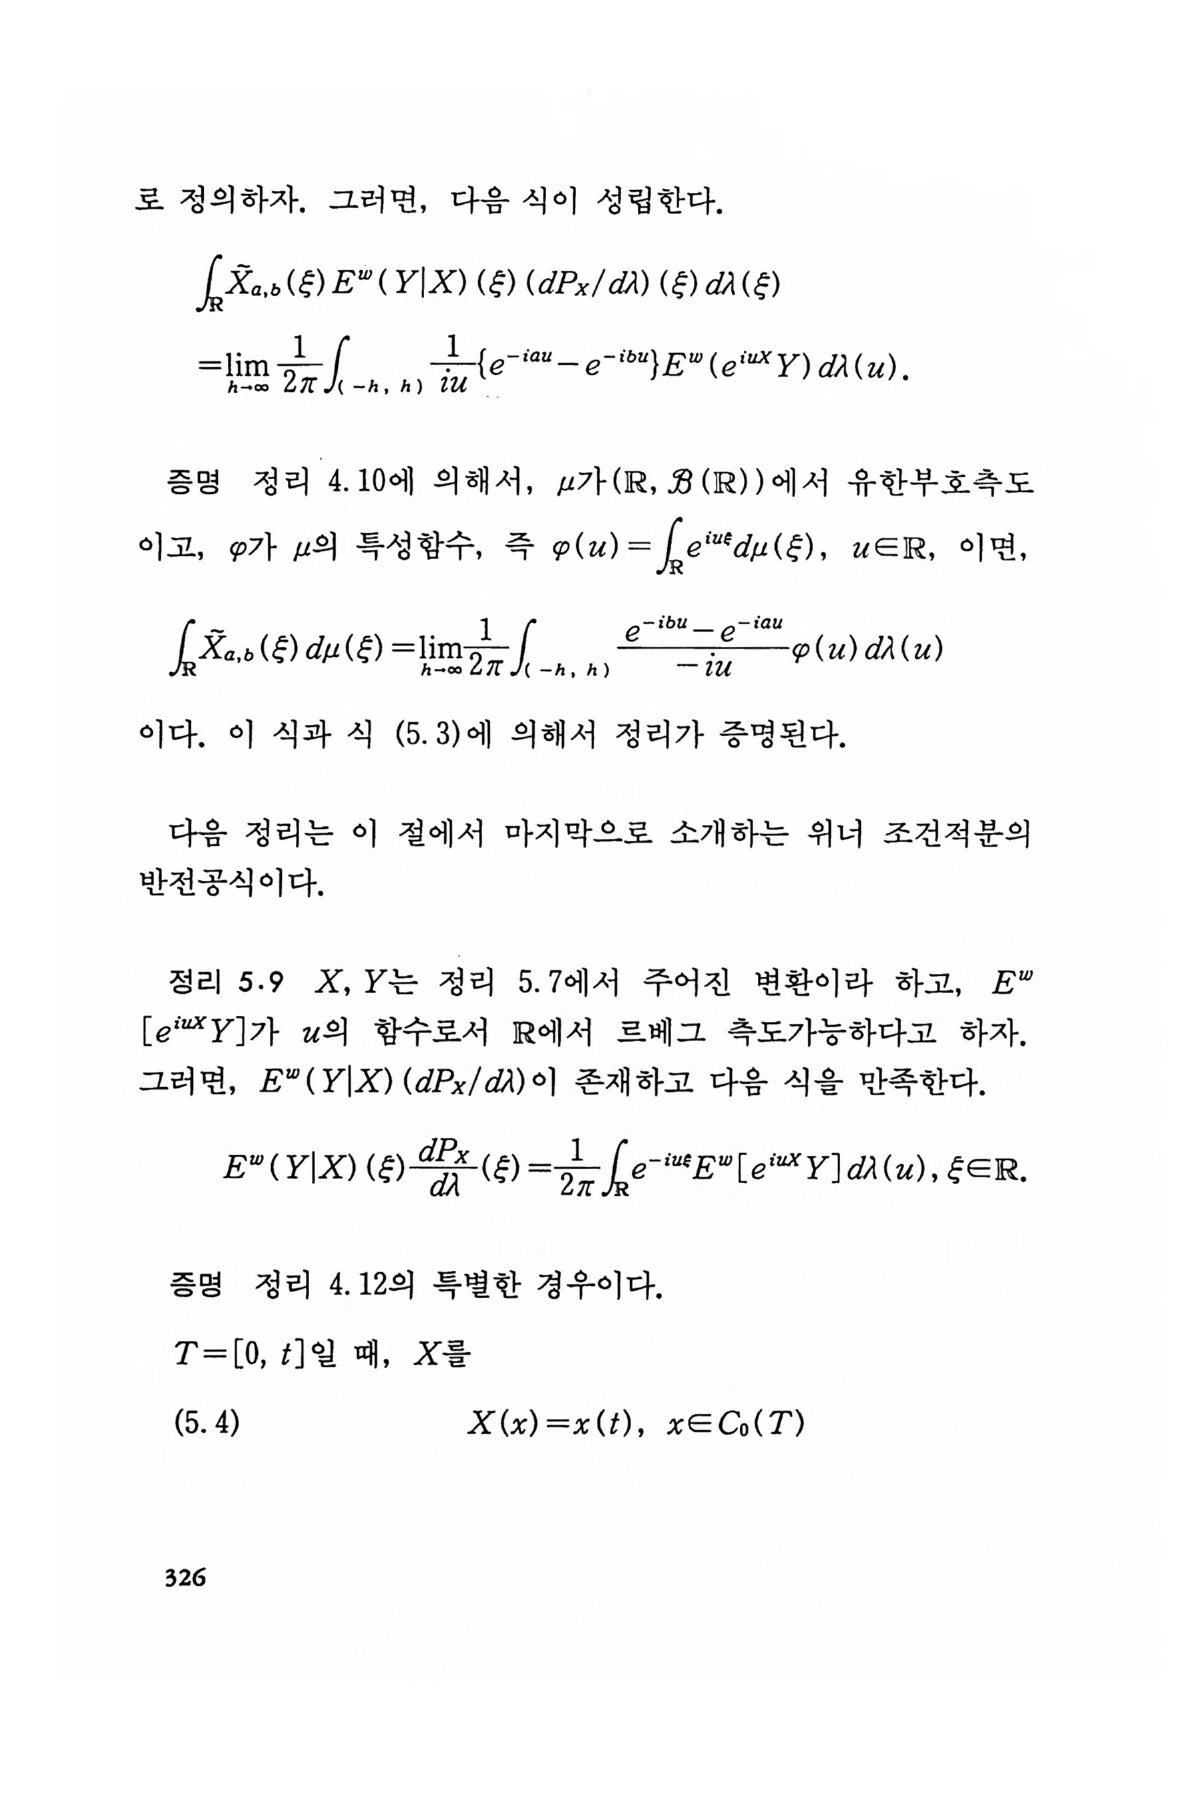 로 정의하자. 그러면, 다음 식이 성립한다.
∫_ℝ X̃_{a,b}(ξ) E^w(Y|X)(ξ)(dP_X/dλ)(ξ)dλ(ξ)
=lim_{h→∞} 1/2π ∫_{(-h, h)} 1/iu {e^{-iau} − e^{-ibu}}E^w(e^{iuX}Y)dλ(u).
증명 정리 4.10에 의해서, μ가(ℝ, ℬ(ℝ))에서 유한부호측도
이고, φ가 μ의 특성함수, 즉 φ(u)=∫_ℝ e^{iuξ}dμ(ξ), u∈ℝ, 이면,
∫_ℝ X̃_{a,b}(ξ)dμ(ξ)=lim_{h→∞} 1/2π ∫_{(-h, h)} (e^{-ibu} − e^{-iau})/(−iu) φ(u)dλ(u)
이다. 이 식과 식 (5.3)에 의해서 정리가 증명된다.
다음 정리는 이 절에서 마지막으로 소개하는 위너 조건적분의
반전공식이다.
정리 5.9 X, Y는 정리 5.7에서 주어진 변환이라 하고, E^w
[e^{iuX}Y]가 u의 함수로서 ℝ에서 르베그 측도가능하다고 하자.
그러면, E^w(Y|X)(dP_X/dλ)이 존재하고 다음 식을 만족한다.
E^w(Y|X)(ξ) dP_X/dλ (ξ)=1/2π ∫_ℝ e^{-iuξ}E^w[e^{iuX}Y]dλ(u), ξ∈ℝ.
증명 정리 4.12의 특별한 경우이다.
T=[0, t]일 때, X를
(5.4) X(x)=x(t), x∈C₀(T)
326